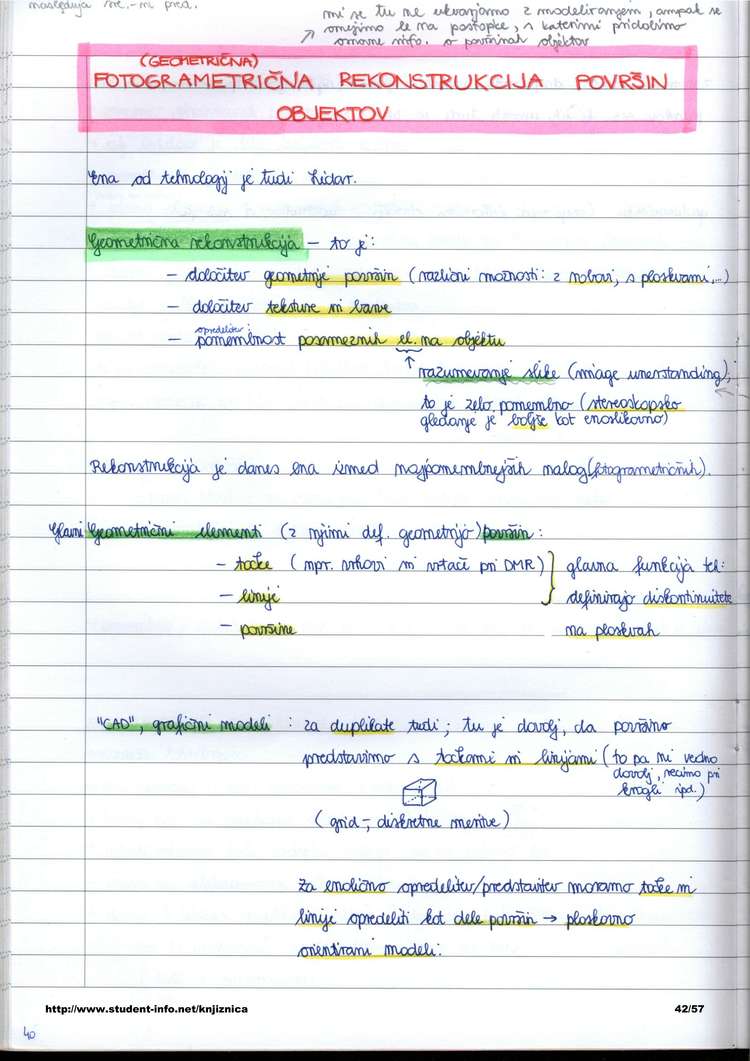 nasleduja sre.-in pred.
mi se tu ne ukvarjamo z modeliranjem, ampak se
omejimo le na postopke, s katerimi pridobimo
osnovne info. o površinah objektov
(GEOMETRIČNA)
FOTOGRAMETRIČNA REKONSTRUKCIJA POVRŠIN
OBJEKTOV
Ena od tehnologij je tudi Lidar.
Geometrična rekonstrukcija – to je:
– določitev geometrije površin (različni možnosti: z robovi, s ploskvami,...)
– določitev teksture in barve
opredelitev
– pomembnost posameznih el. na objektu
↑
razumevanje slike (image unerstanding);
to je zelo pomembno (stereoskopsko
gledanje je boljše kot enoslikovno)
Rekonstrukcija je danes ena izmed najpomembnejših nalog (fotogrametričnih).
Glavni Geometrični elementi (z njimi def. geometrijo) površin:
– točke (npr. vrhovi in vrtače pri DMR) } glavna funkcija teh:
– linije definirajo diskontinuitete
– površine na ploskvah
"CAD", grafični modeli : za duplikate tudi; tu je dovolj, da površino
predstavimo s točkami in linijami (to pa ni vedno
dovolj, recimo pri
krogli ipd.)
(grid –, diskretne meritve)
Za enolično opredelitev/predstavitev moramo točke in
linije opredeliti kot dele površin → ploskovno
orientirani modeli.
http://www.student-info.net/knjiznica 42/57
40